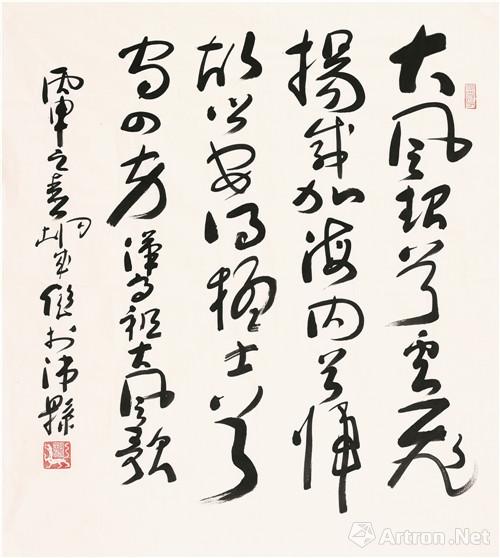 大風起兮雲飛
揚威加海内兮歸
故鄉安得猛士兮
守四方 漢高祖大風歌
丙申之春 於沛縣
Artron.Net